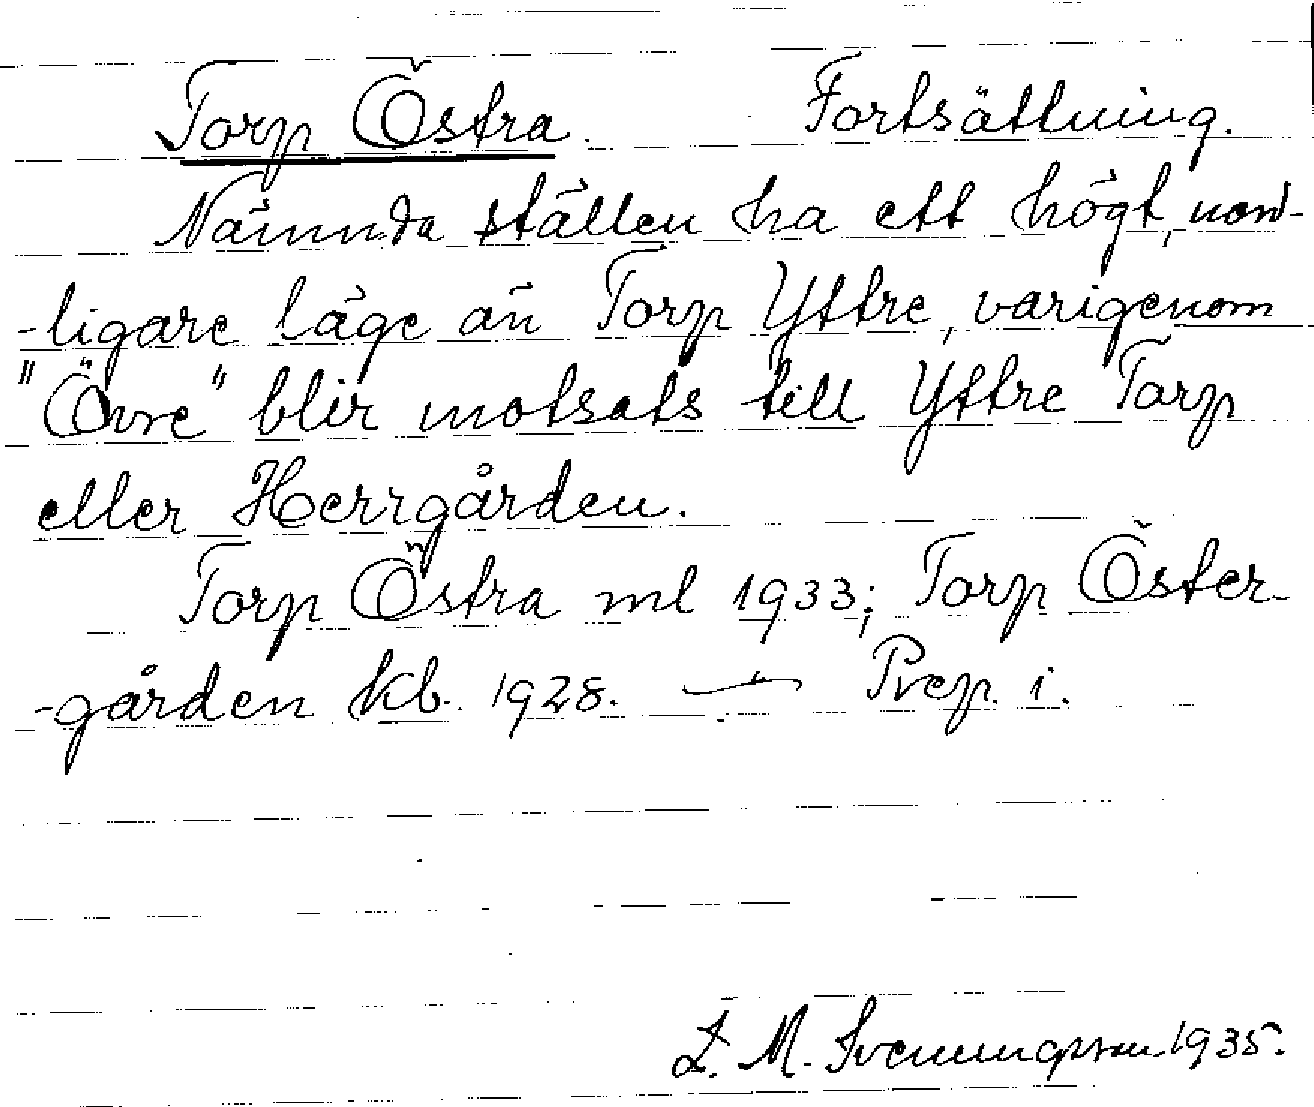 Torp Östra. Fortsättning.
Nämnda ställen ha ett högt, nord-
-ligare läge än Torp Yttre, varigenom
"Övre" blir motsats till Yttre Torp
eller Herrgården.
Torp Östra ml 1933; Torp Öster-
-gården kb. 1928. — Prep. i.
L. M. Svenungsson 1935.